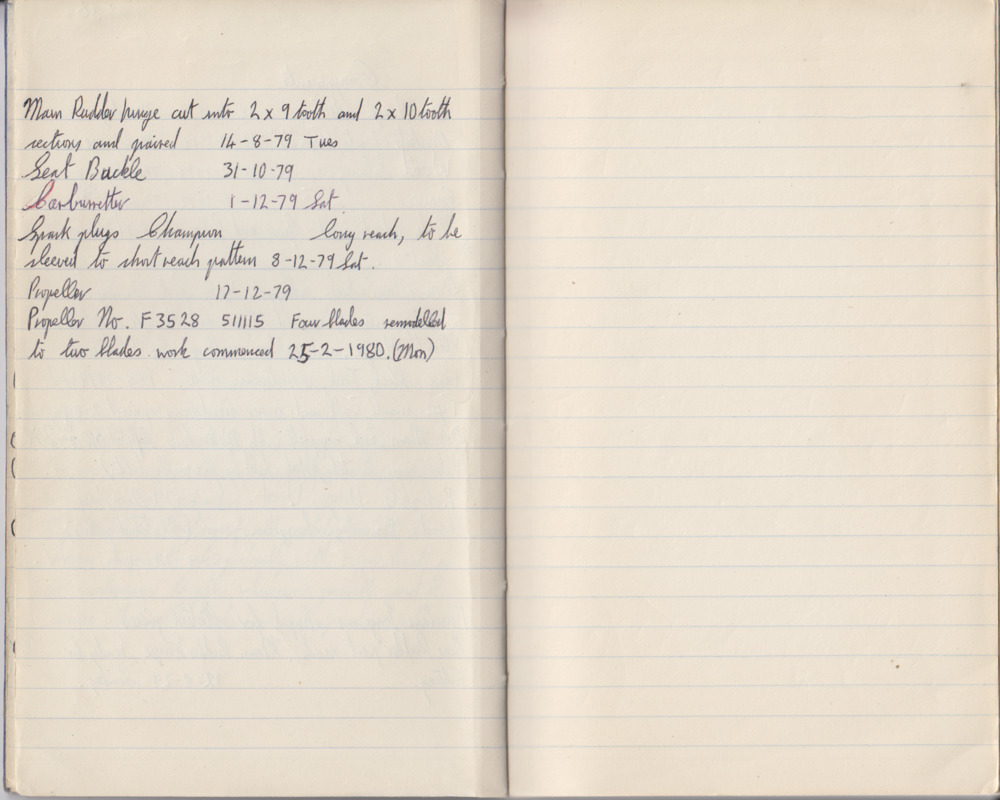 Main Rudder hinge cut into 2 x 9 tooth and 2 x 10 tooth
sections and paired 14-8-79 Tues
Seat Buckle 31-10-79
Carburretter 1-12-79 Sat.
Spark plugs Champion long reach, to be
sleeved to short reach pattern 8-12-79 Sat.
Propeller 17-12-79
Propeller No. F3528 511115 Four blades remodelled
to two blades. work commenced 25-2-1980. (Mon)